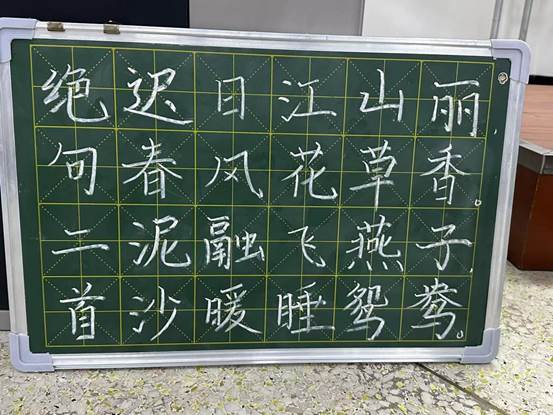 绝句二首
迟日江山丽
春风花草香。
泥融飞燕子
沙暖睡鸳鸯。